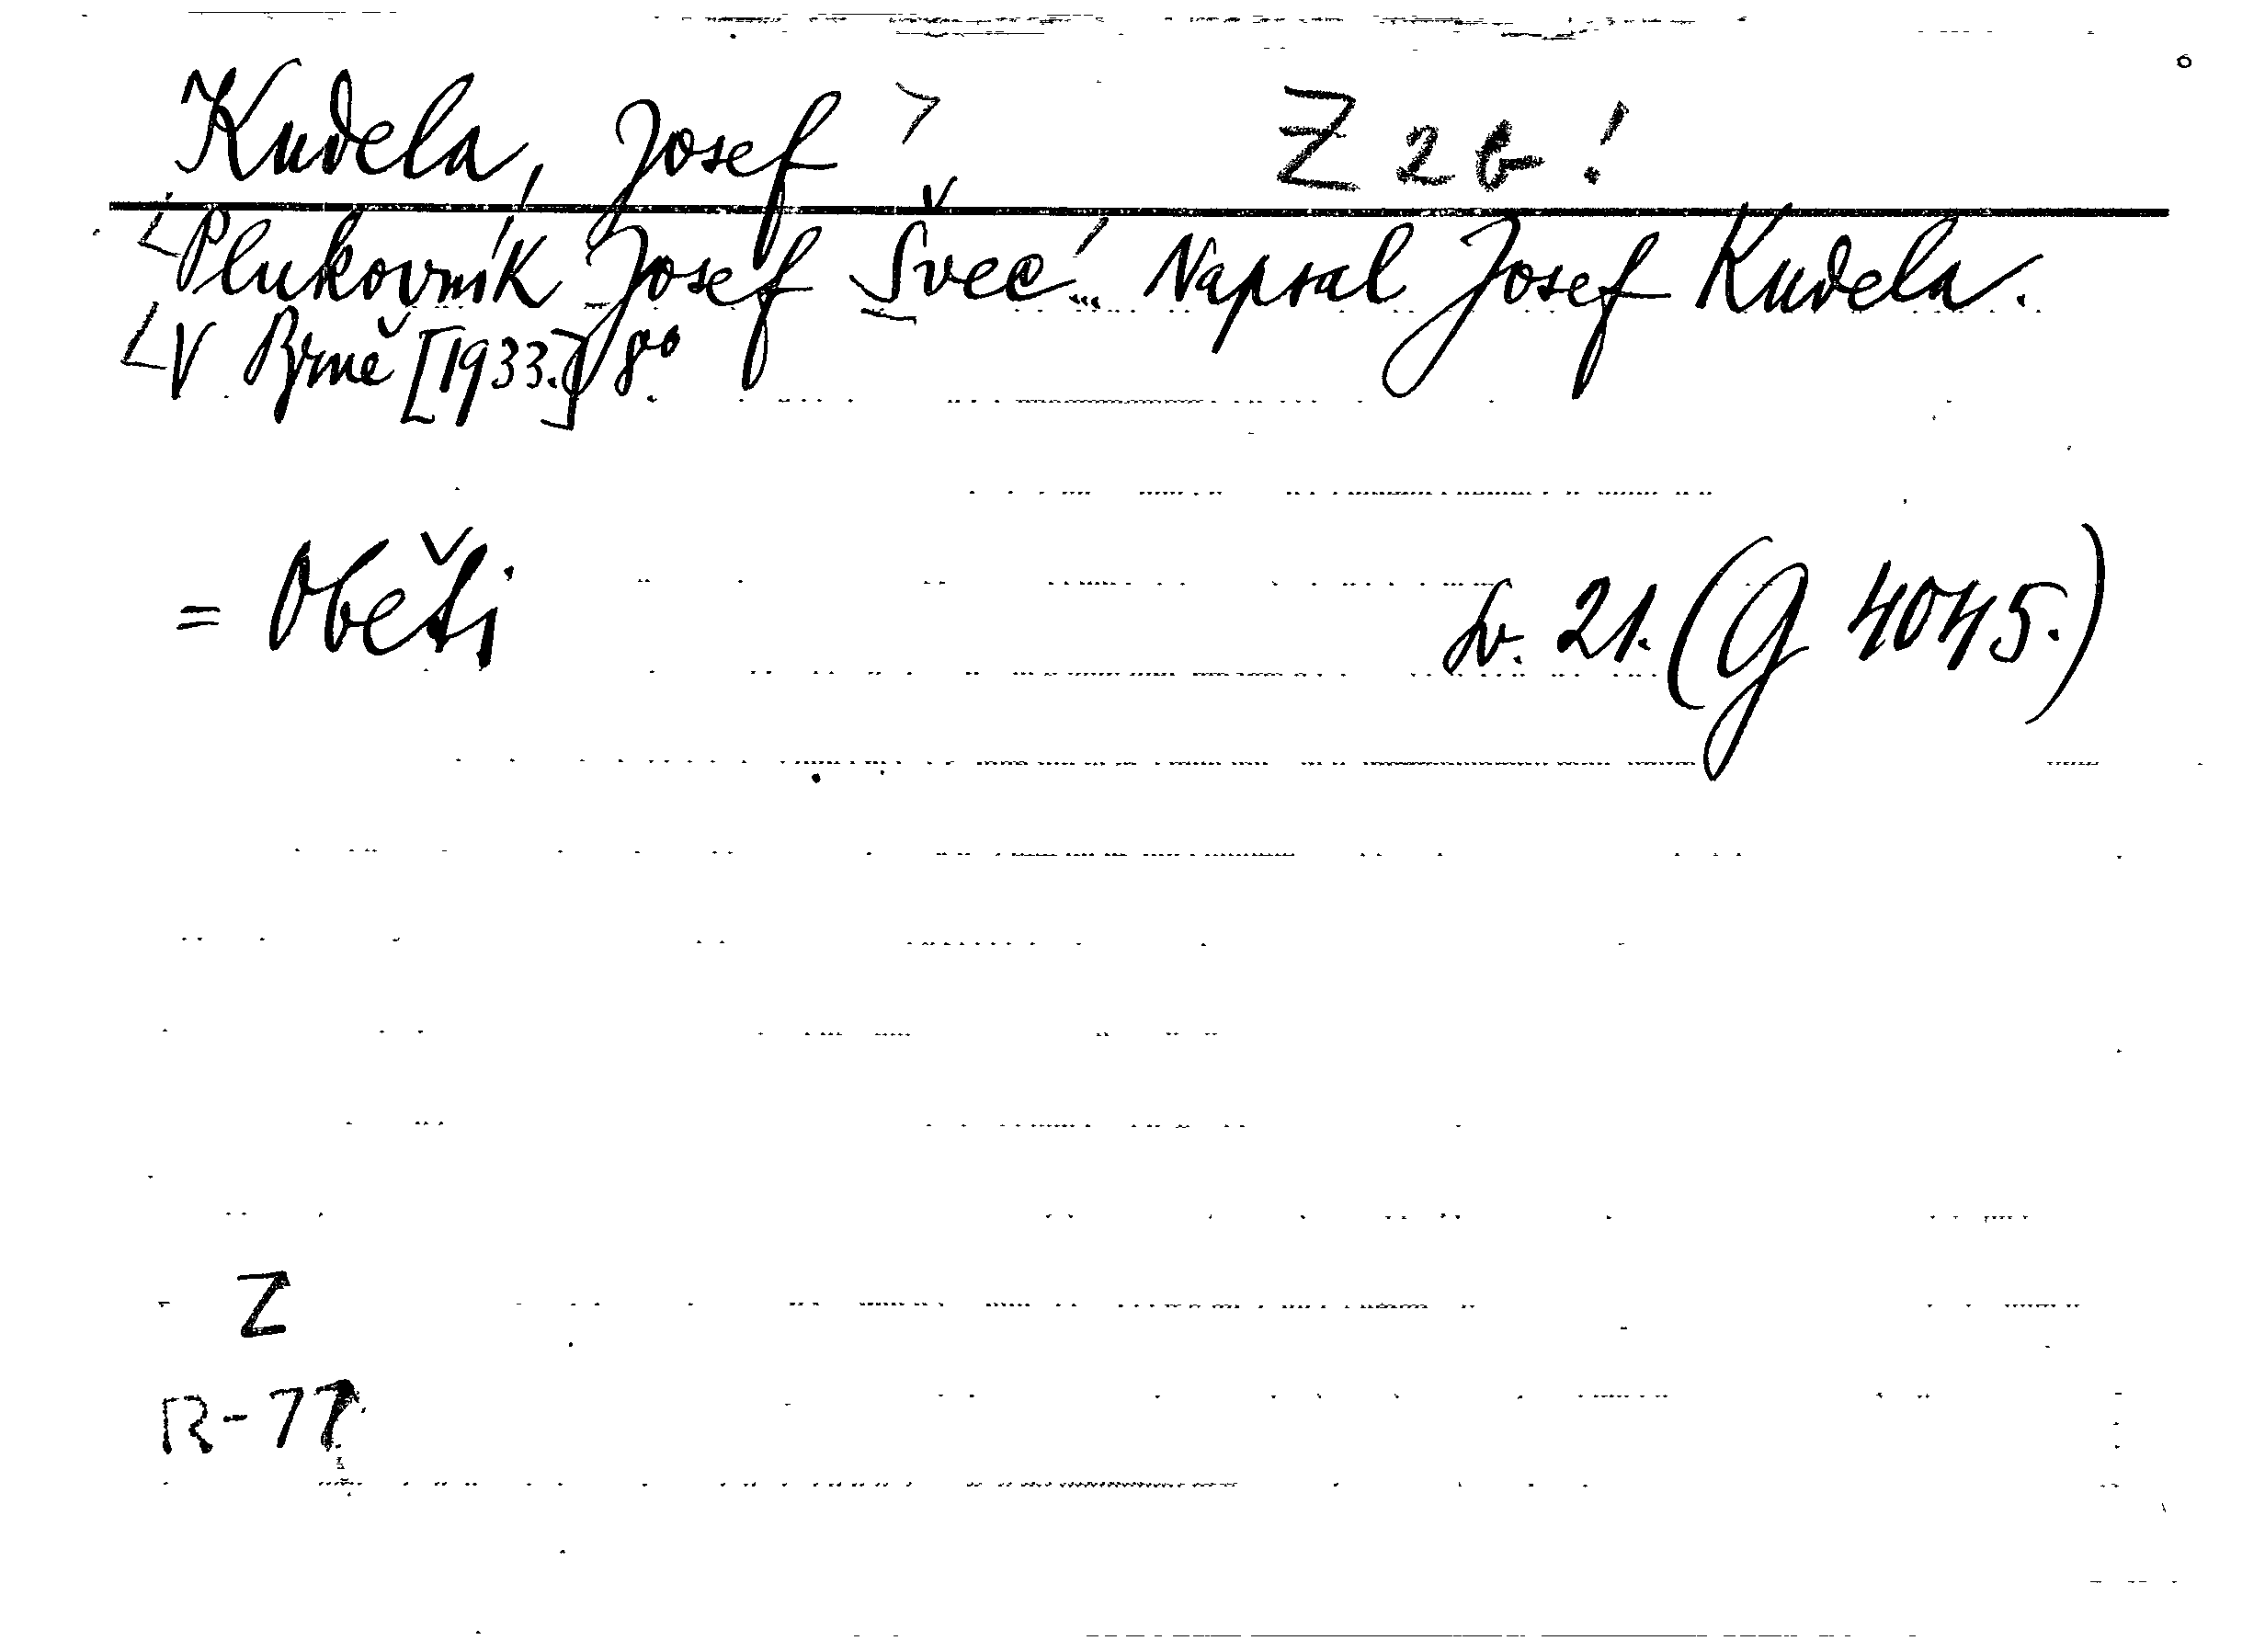 Kudela, Josef Z 2b!
Plukovník Josef Švec... Napsal Josef Kudela.
V Brně [1933.] 8°.
= Oběti sv. 21. (G 4045.)
Z
R-77